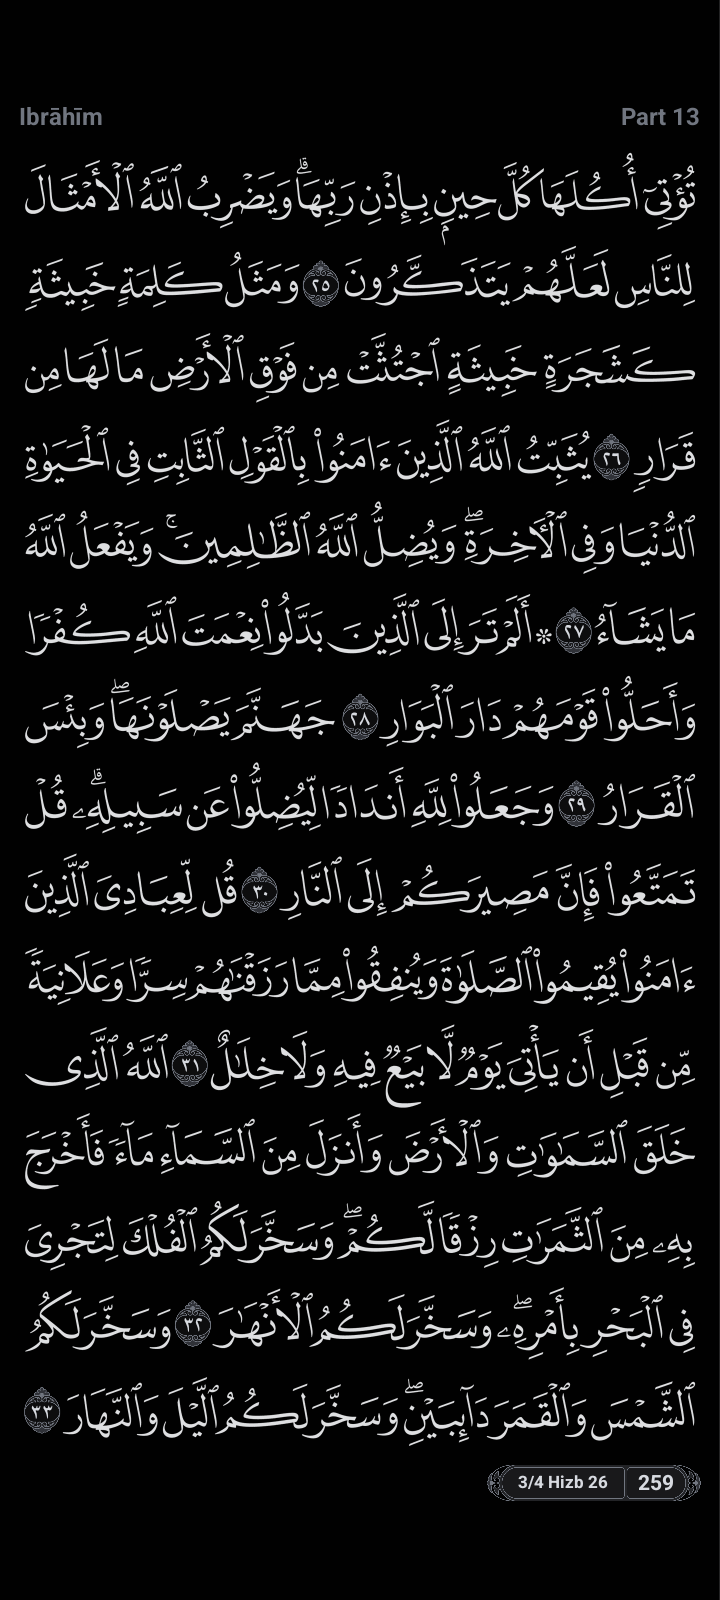 Ibrāhīm
Part 13
تُؤْتِىٓ أُكُلَهَا كُلَّ حِينٍۭ بِإِذْنِ رَبِّهَا ۗ وَيَضْرِبُ ٱللَّهُ ٱلْأَمْثَالَ
لِلنَّاسِ لَعَلَّهُمْ يَتَذَكَّرُونَ ٢٥ وَمَثَلُ كَلِمَةٍ خَبِيثَةٍ
كَشَجَرَةٍ خَبِيثَةٍ ٱجْتُثَّتْ مِن فَوْقِ ٱلْأَرْضِ مَا لَهَا مِن
قَرَارٍ ٢٦ يُثَبِّتُ ٱللَّهُ ٱلَّذِينَ ءَامَنُوا۟ بِٱلْقَوْلِ ٱلثَّابِتِ فِى ٱلْحَيَوٰةِ
ٱلدُّنْيَا وَفِى ٱلْـَٔاخِرَةِ ۖ وَيُضِلُّ ٱللَّهُ ٱلظَّـٰلِمِينَ ۚ وَيَفْعَلُ ٱللَّهُ
مَا يَشَآءُ ٢٧ ۞ أَلَمْ تَرَ إِلَى ٱلَّذِينَ بَدَّلُوا۟ نِعْمَتَ ٱللَّهِ كُفْرًا
وَأَحَلُّوا۟ قَوْمَهُمْ دَارَ ٱلْبَوَارِ ٢٨ جَهَنَّمَ يَصْلَوْنَهَا ۖ وَبِئْسَ
ٱلْقَرَارُ ٢٩ وَجَعَلُوا۟ لِلَّهِ أَندَادًا لِّيُضِلُّوا۟ عَن سَبِيلِهِۦ ۗ قُلْ
تَمَتَّعُوا۟ فَإِنَّ مَصِيرَكُمْ إِلَى ٱلنَّارِ ٣٠ قُل لِّعِبَادِىَ ٱلَّذِينَ
ءَامَنُوا۟ يُقِيمُوا۟ ٱلصَّلَوٰةَ وَيُنفِقُوا۟ مِمَّا رَزَقْنَـٰهُمْ سِرًّا وَعَلَانِيَةً
مِّن قَبْلِ أَن يَأْتِىَ يَوْمٌ لَّا بَيْعٌ فِيهِ وَلَا خِلَـٰلٌ ٣١ ٱللَّهُ ٱلَّذِى
خَلَقَ ٱلسَّمَـٰوَٰتِ وَٱلْأَرْضَ وَأَنزَلَ مِنَ ٱلسَّمَآءِ مَآءً فَأَخْرَجَ
بِهِۦ مِنَ ٱلثَّمَرَٰتِ رِزْقًا لَّكُمْ ۖ وَسَخَّرَ لَكُمُ ٱلْفُلْكَ لِتَجْرِىَ
فِى ٱلْبَحْرِ بِأَمْرِهِۦ ۖ وَسَخَّرَ لَكُمُ ٱلْأَنْهَـٰرَ ٣٢ وَسَخَّرَ لَكُمُ
ٱلشَّمْسَ وَٱلْقَمَرَ دَآئِبَيْنِ ۖ وَسَخَّرَ لَكُمُ ٱلَّيْلَ وَٱلنَّهَارَ ٣٣
3/4 Hizb 26 259